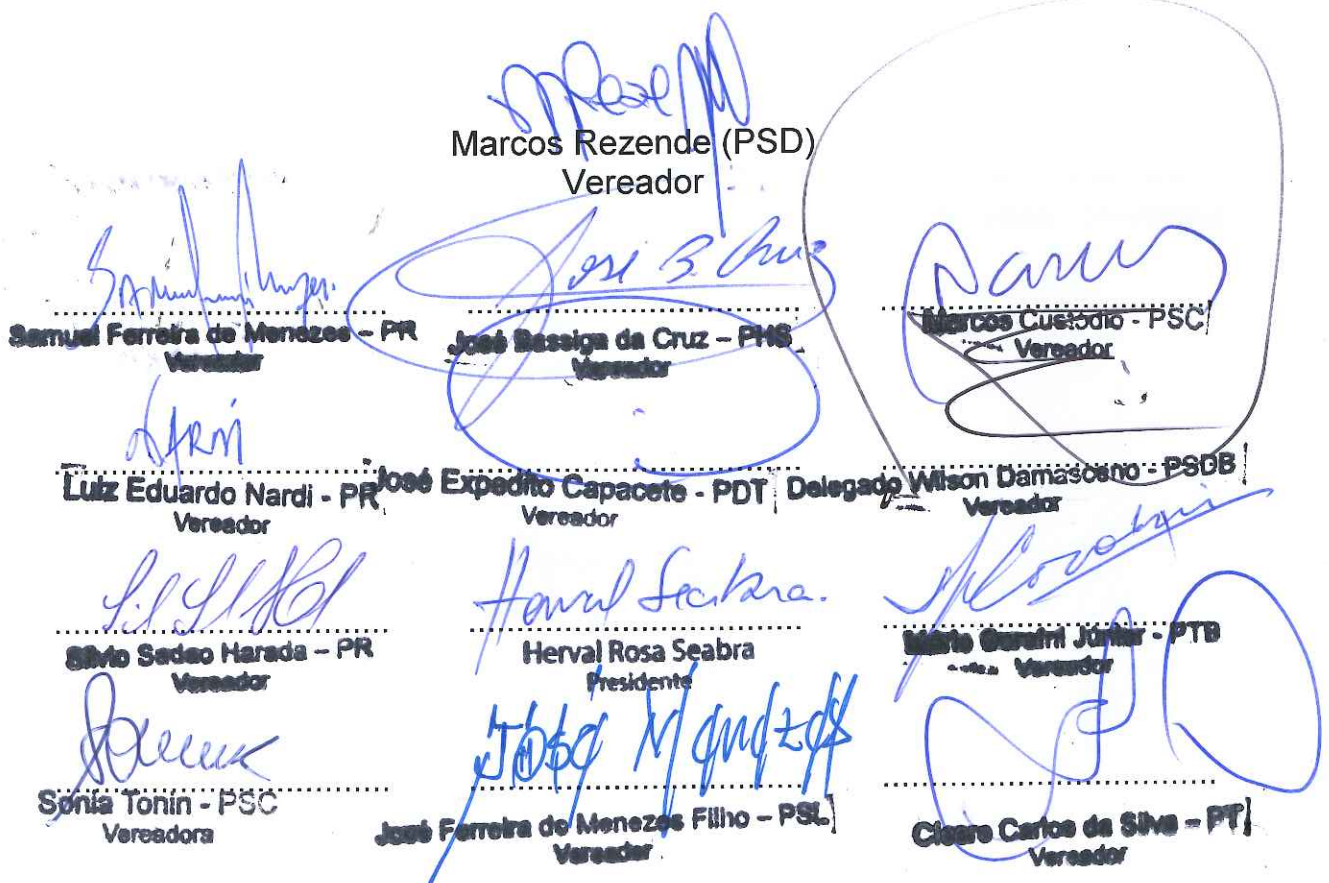 Marcos Rezende (PSD)
Vereador
Jose B. Cruz
Samuel Ferreira de Menezes – PR
Vereador
José Bassiga da Cruz – PHS
Vereador
Marcos Custódio - PSC
Vereador
NARDI
Luiz Eduardo Nardi - PR
Vereador
José Expedito Capacete - PDT
Vereador
Delegado Wilson Damasceno - PSDB
Vereador
Herval Seabra
Silvio Sadao Harada – PR
Vereador
Herval Rosa Seabra
Presidente
Mário Coraíni Júnior - PTB
Vereador
José Menezes
Sonia Tonin - PSC
Vereadora
José Ferreira de Menezes Filho – PSL
Vereador
Cícero Carlos da Silva – PT
Vereador